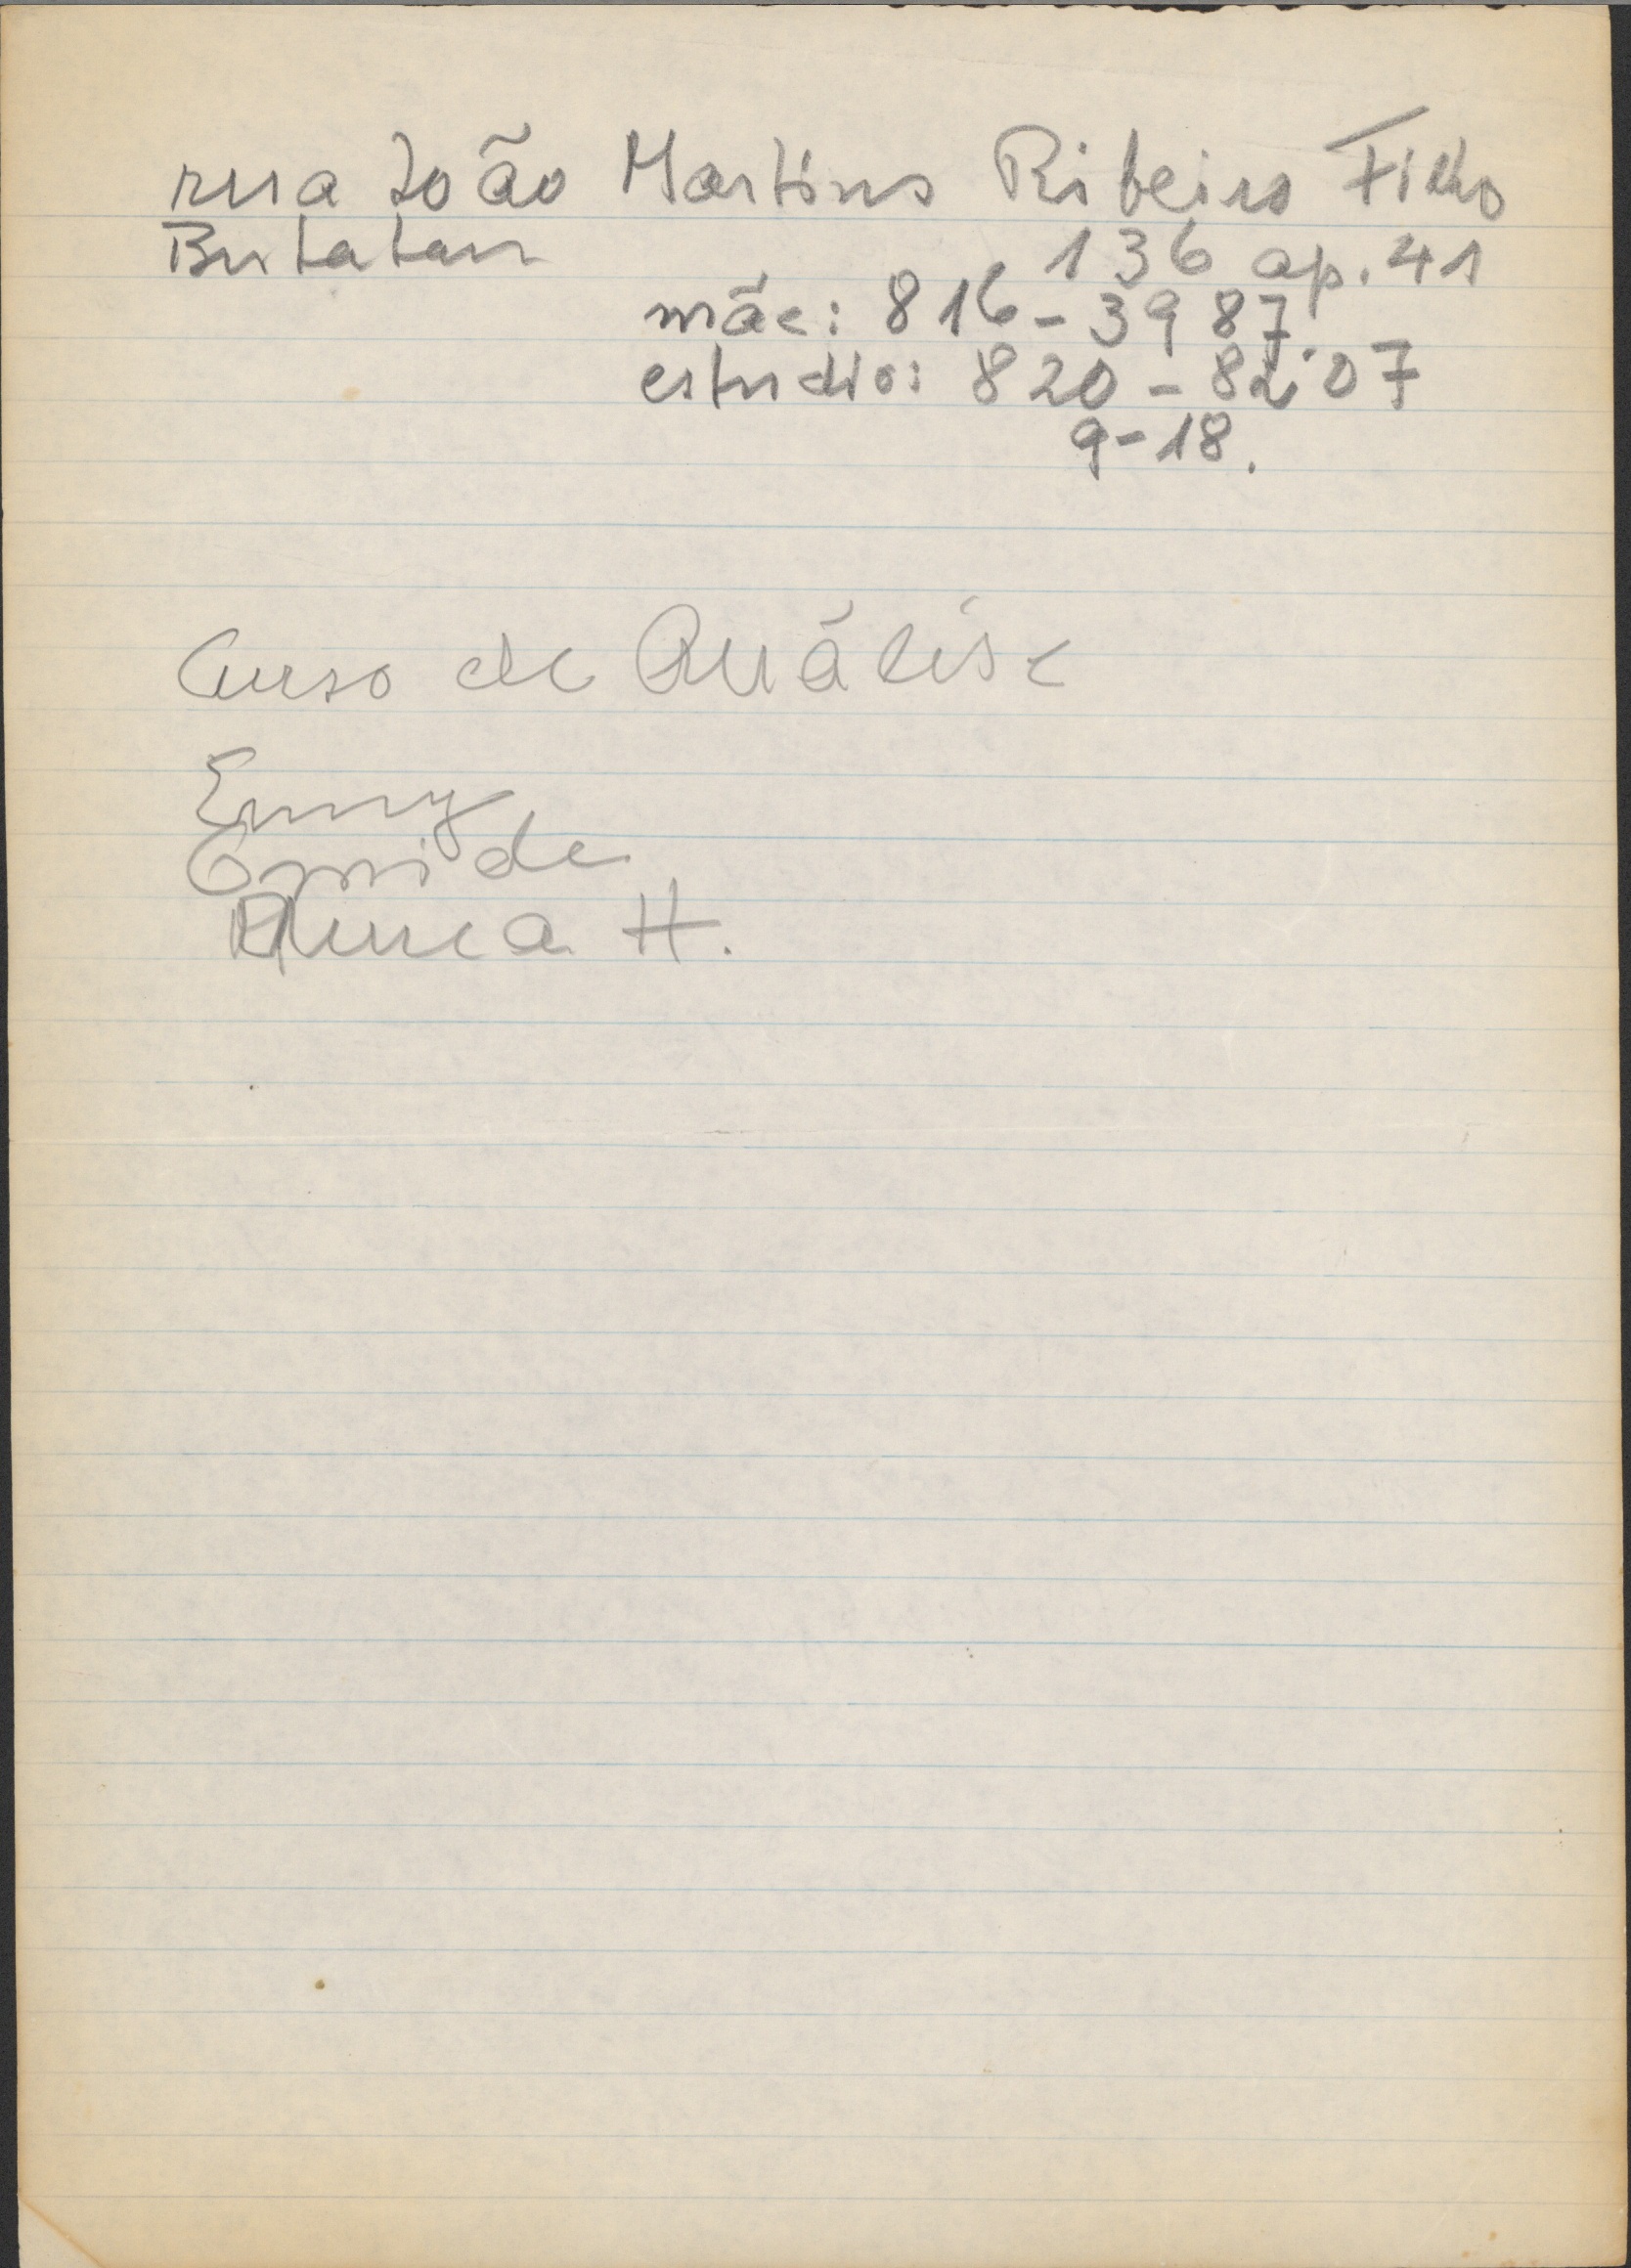 rua João Martins Ribeiro Filho
Butatan 136 ap. 41
mãe: 816-3987
estudio: 820-8207
9-18.
Curso de Análise
Emmy
H.